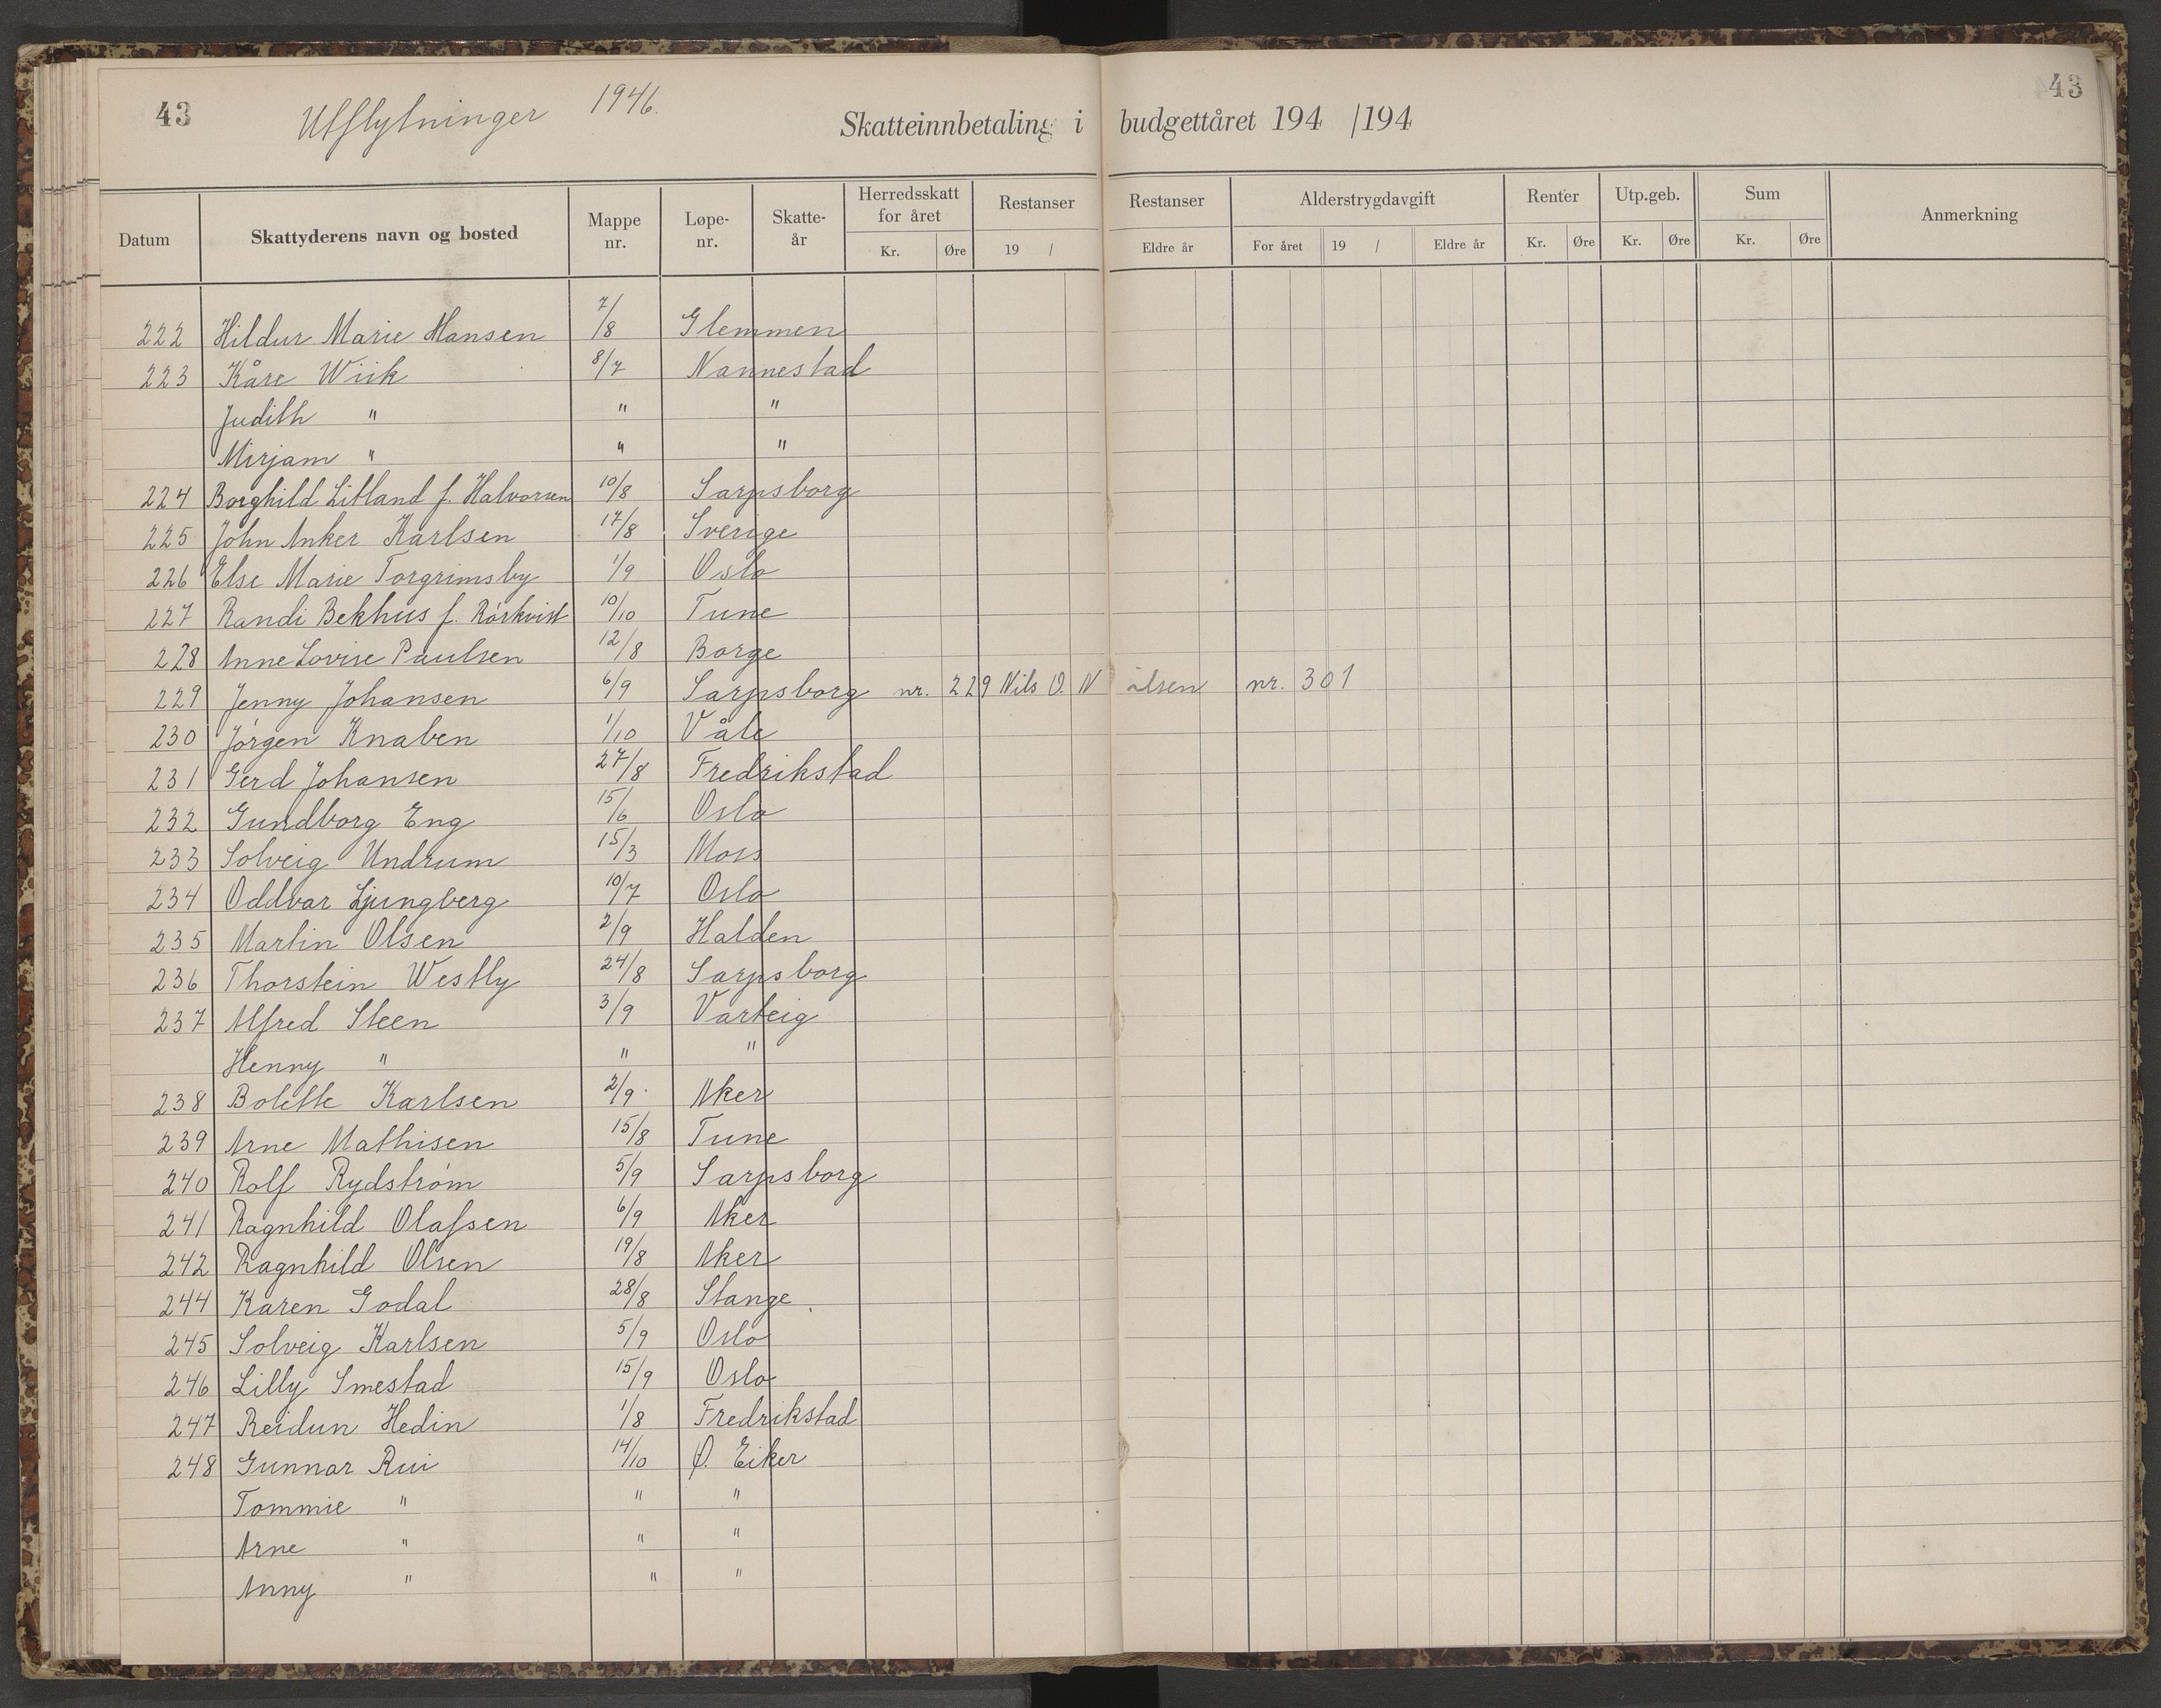 43 Utflytninger 1946. Skatteinnbetaling i budgettåret 194 /194 43
Datum Skattyderens navn og bosted Mappe nr. Løpe-nr. Skatte-år Herredsskatt for året Kr. Øre Restanser 19 / Restanser Eldre år Alderstrygdavgift For året 19 / Eldre år Renter Kr. Øre Utp.geb. Kr. Øre Sum Kr. Øre Anmerkning
222 Hildur Marie Hansen 7/8 Glemmen
223 Kåre Wiik 8/7 Nannestad
Judith " " "
Mirjam " " "
224 Borghild Litland f. Halvorsen 10/8 Sarpsborg
225 John Anker Karlsen 17/8 Sverige
226 Else Marie Torgrimsby 1/9 Oslo
227 Randi Bekhus f. Rörkvist 10/10 Tune
228 Anne Lovise Paulsen 12/8 Borge
229 Jenny Johansen 6/9 Sarpsborg nr. 229 Nils O. Nilsen nr. 301
230 Jörgen Knaben 1/10 Våle
231 Gerd Johansen 27/8 Fredrikstad
232 Gundborg Eng 15/6 Oslo
233 Solveig Undrum 15/3 Moss
234 Oddvar Ljungberg 10/7 Oslo
235 Martin Olsen 2/9 Halden
236 Thorstein Westly 24/8 Sarpsborg
237 Alfred Steen 3/9 Varteig
Henny " " "
238 Bolette Karlsen 2/9 Aker
239 Arne Mathisen 15/8 Tune
240 Rolf Rydström 5/9 Sarpsborg
241 Ragnhild Olafsen 6/9 Aker
242 Ragnhild Olsen 19/8 Aker
244 Karen Godal 28/8 Stange
245 Solveig Karlsen 5/9 Oslo
246 Lilly Smestad 15/9 Oslo
247 Reidun Hedin 1/8 Fredrikstad
248 Gunnar Rui 14/10 Ø. Eiker
Tommie " " "
Arne " " "
Anny " " "